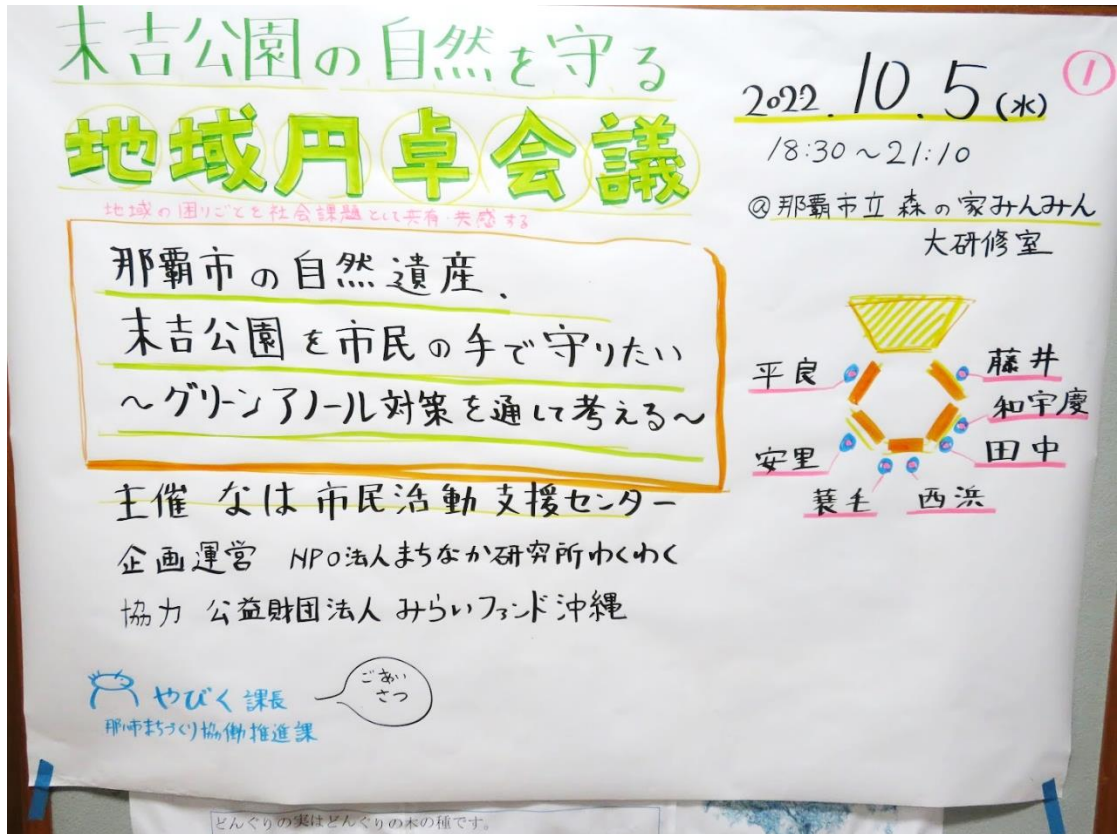 末吉公園の自然を守る
地域円卓会議
地域の困りごとを社会課題として共有・共感する
那覇市の自然遺産、
末吉公園を市民の手で守りたい
～グリーンアノール対策を通して考える～
主催 なは市民活動支援センター
企画運営 NPO法人まちなか研究所わくわく
協力 公益財団法人みらいファンド沖縄
やびく課長
ごあい
さつ
那市まちづくり協働推進課
①
2022.10.5(水)
18:30～21:10
@那覇市立 森の家みんみん
大研修室
平良
藤井
和宇慶
安里
田中
蓑毛
西浜
どんぐりの実はどんぐりの木の種です。